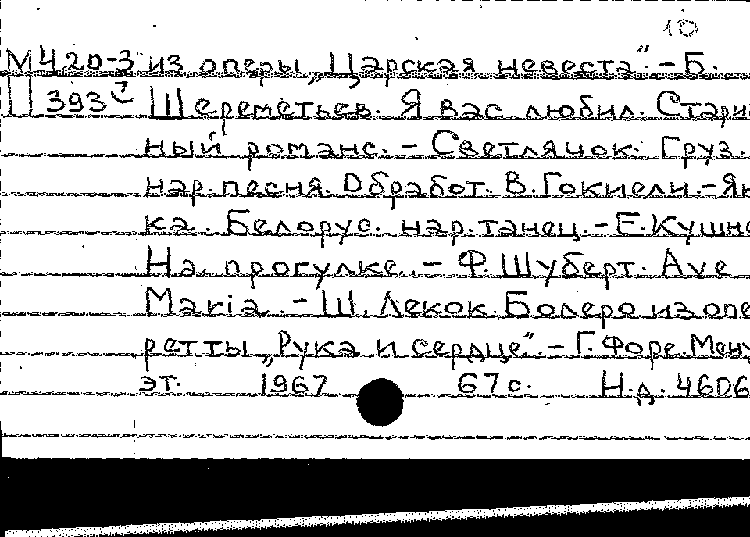 10
М 420-3 из оперы „Царская невеста“. – Б.
393 Шереметьев. Я вас любил. Старин
ный романс. – Светлячок. Груз.
нар. песня. Обработ. В. Гокиели. – Ян
ка. Белорус. нар. танец. – Е. Кушне
На прогулке. – Ф. Шуберт. Ave
Maria. – Ш. Лекок. Болеро из опе
ретты „Рука и сердце“. – Г. Форе. Мену
эт. 1967 67 с. Н.д. 4606